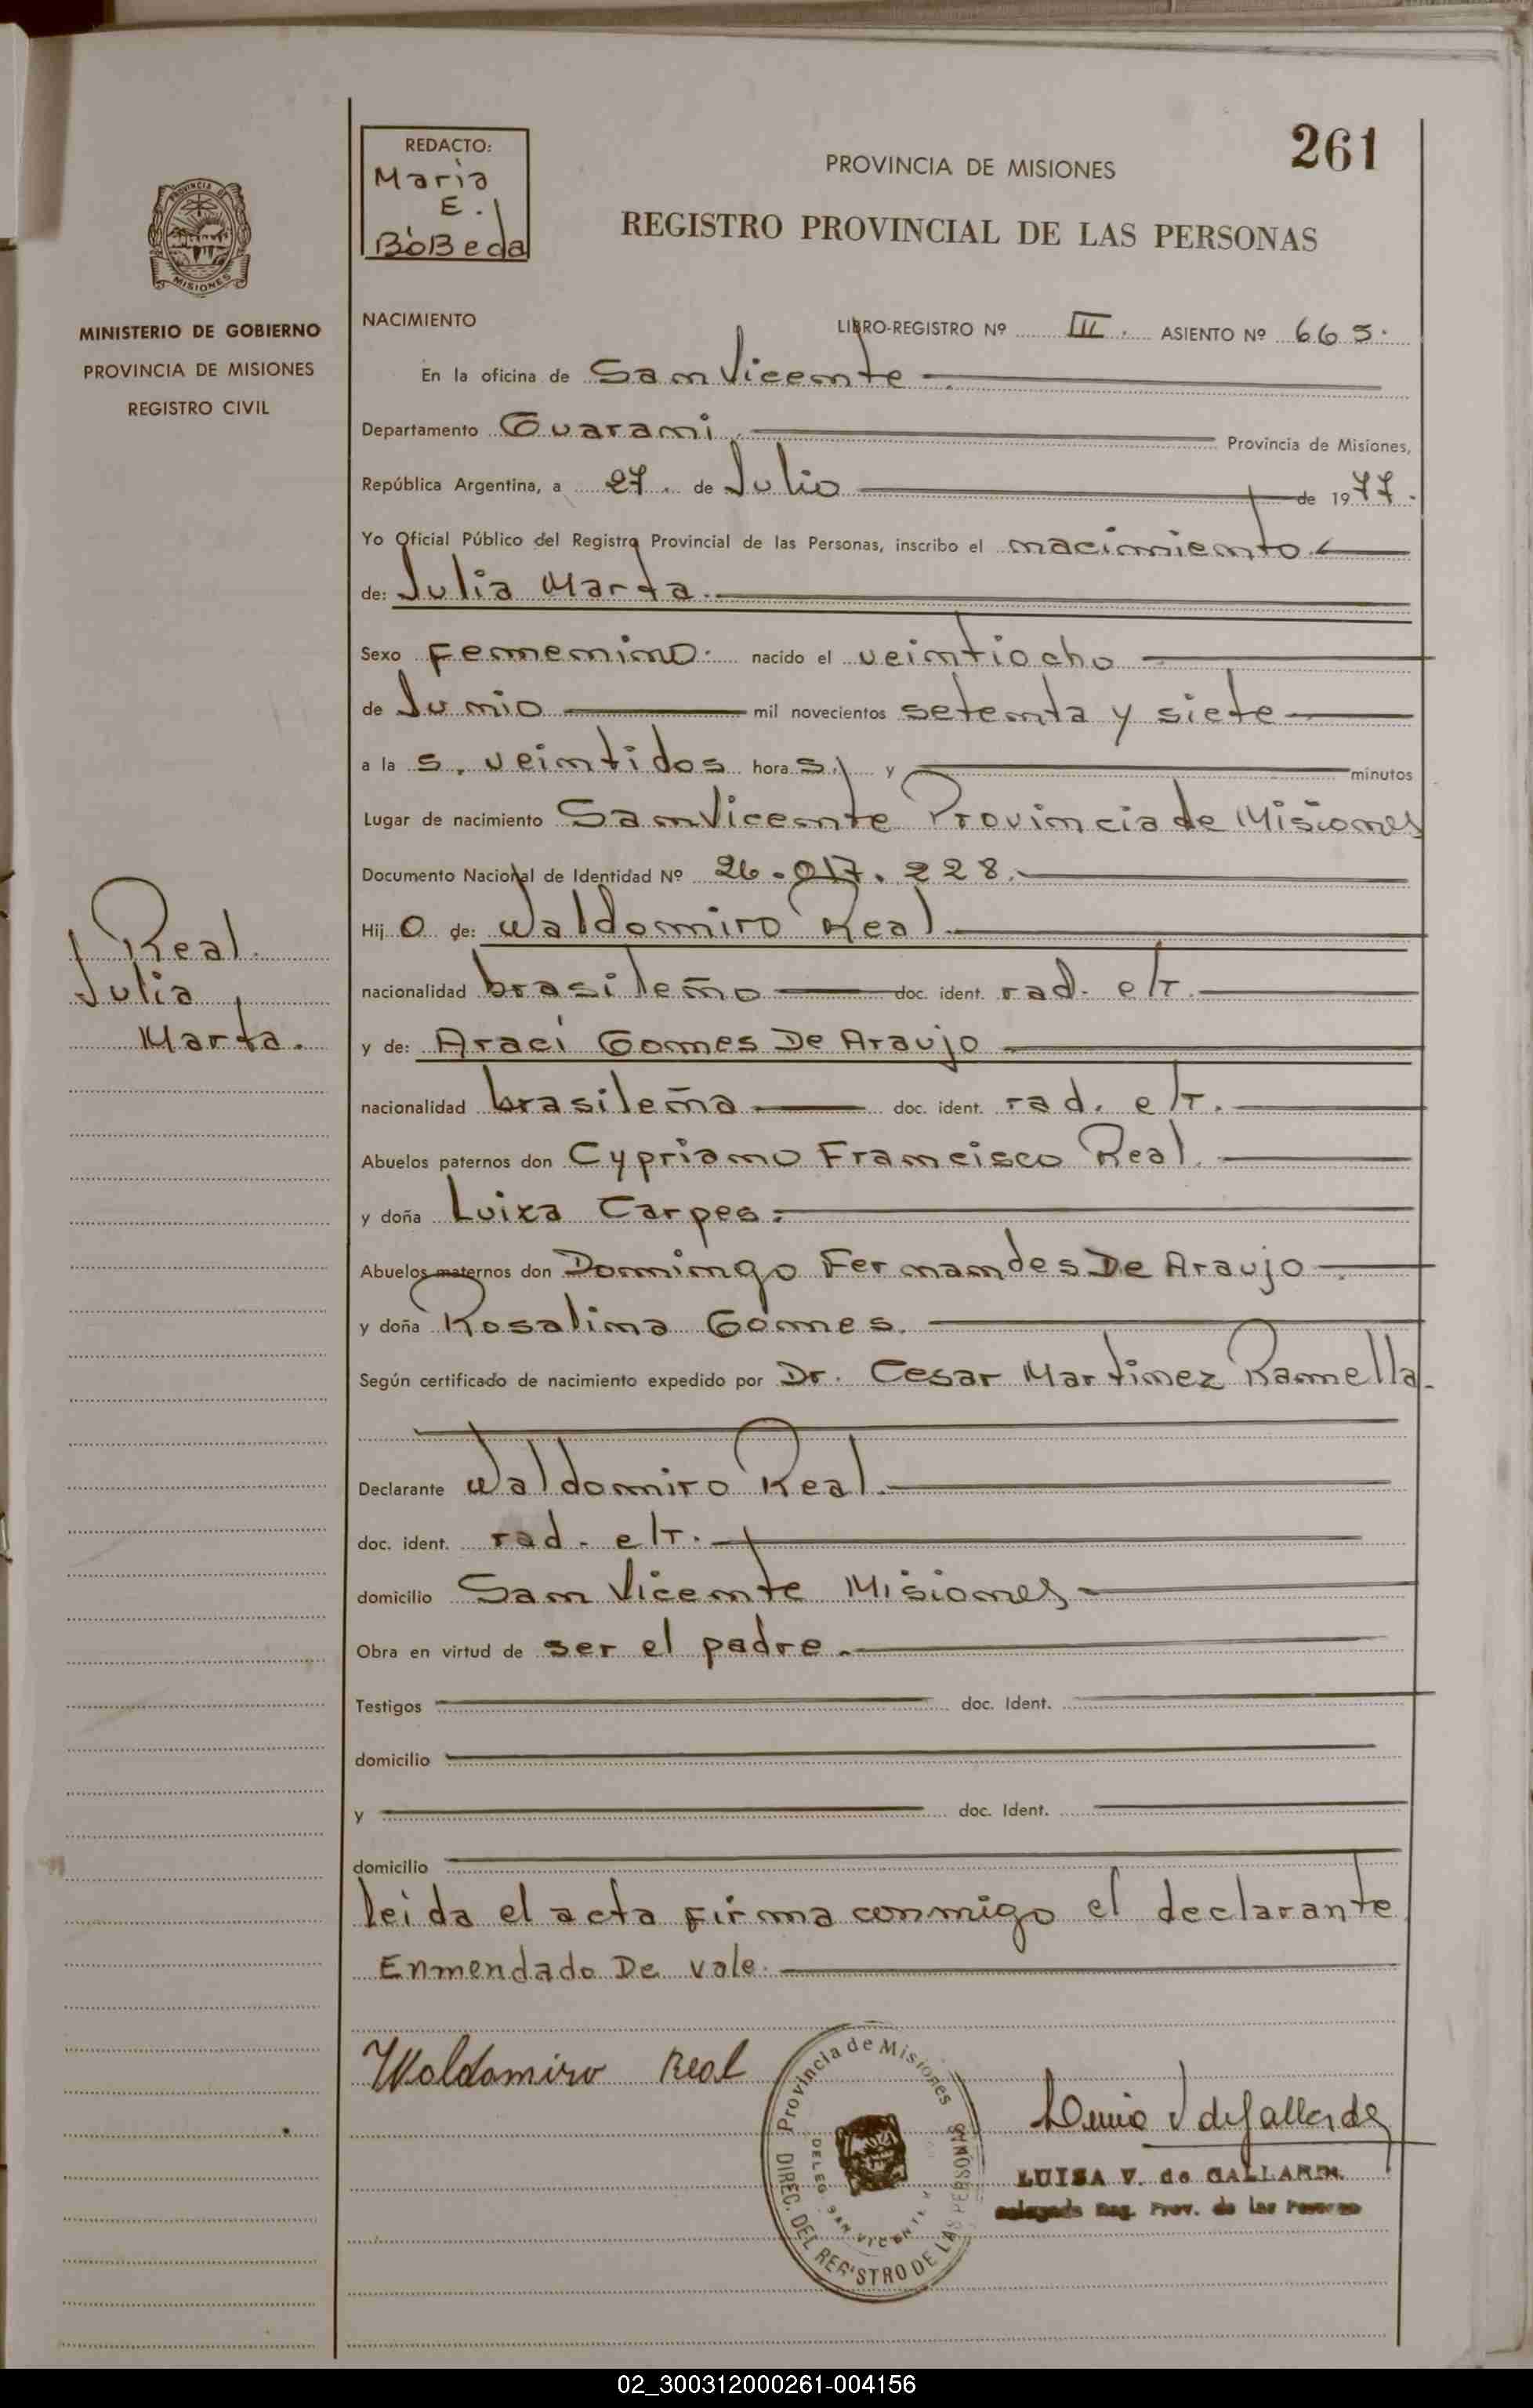 261
REDACTO:
Maria
E.
BoBeda
PROVINCIA DE MISIONES
REGISTRO PROVINCIAL DE LAS PERSONAS
PROVINCIA DE
MISIONES
MINISTERIO DE GOBIERNO
PROVINCIA DE MISIONES
REGISTRO CIVIL
NACIMIENTO
LIBRO-REGISTRO Nº III. ASIENTO Nº 665.
En la oficina de San Vicente
Departamento Guarani Provincia de Misiones,
República Argentina, a 27. de Julio de 1977.
Yo Oficial Público del Registro Provincial de las Personas, inscribo el nacimiento.
de: Julia Marta.
Sexo Femenino. nacido el veintiocho
de Junio mil novecientos setenta y siete
a la s. veintidos hora s. y minutos
Lugar de nacimiento San Vicente Provincia de Misiones
Documento Nacional de Identidad Nº 26.017.228.
Hij o de: Waldomiro Real.
Real.
Julia
Marta.
nacionalidad brasileño doc. ident. rad. etr.
y de: Araci Gomes De Araujo
nacionalidad brasileña doc. ident. rad. etr.
Abuelos paternos don Cypriano Francisco Real.
y doña Luiza Carpes.
Abuelos maternos don Domingo Fernandes De Araujo
y doña Rosalina Gomes.
Según certificado de nacimiento expedido por Dr. Cesar Martinez Ramella.
Declarante Waldomiro Real.
doc. ident. rad. etr.
domicilio San Vicente Misiones
Obra en virtud de ser el padre.
Testigos doc. Ident.
domicilio
y doc. Ident.
domicilio
leida el acta firma conmigo el declarante
Enmendado De vale.
Waldomiro Real
Provincia de Misiones
DIREC. DEL REGISTRO DE LAS PERSONAS
DELEG. SAN VICENTE
LUISA V. de GALLARDO
Delegada Reg. Prov. de las Personas
02_300312000261-004156